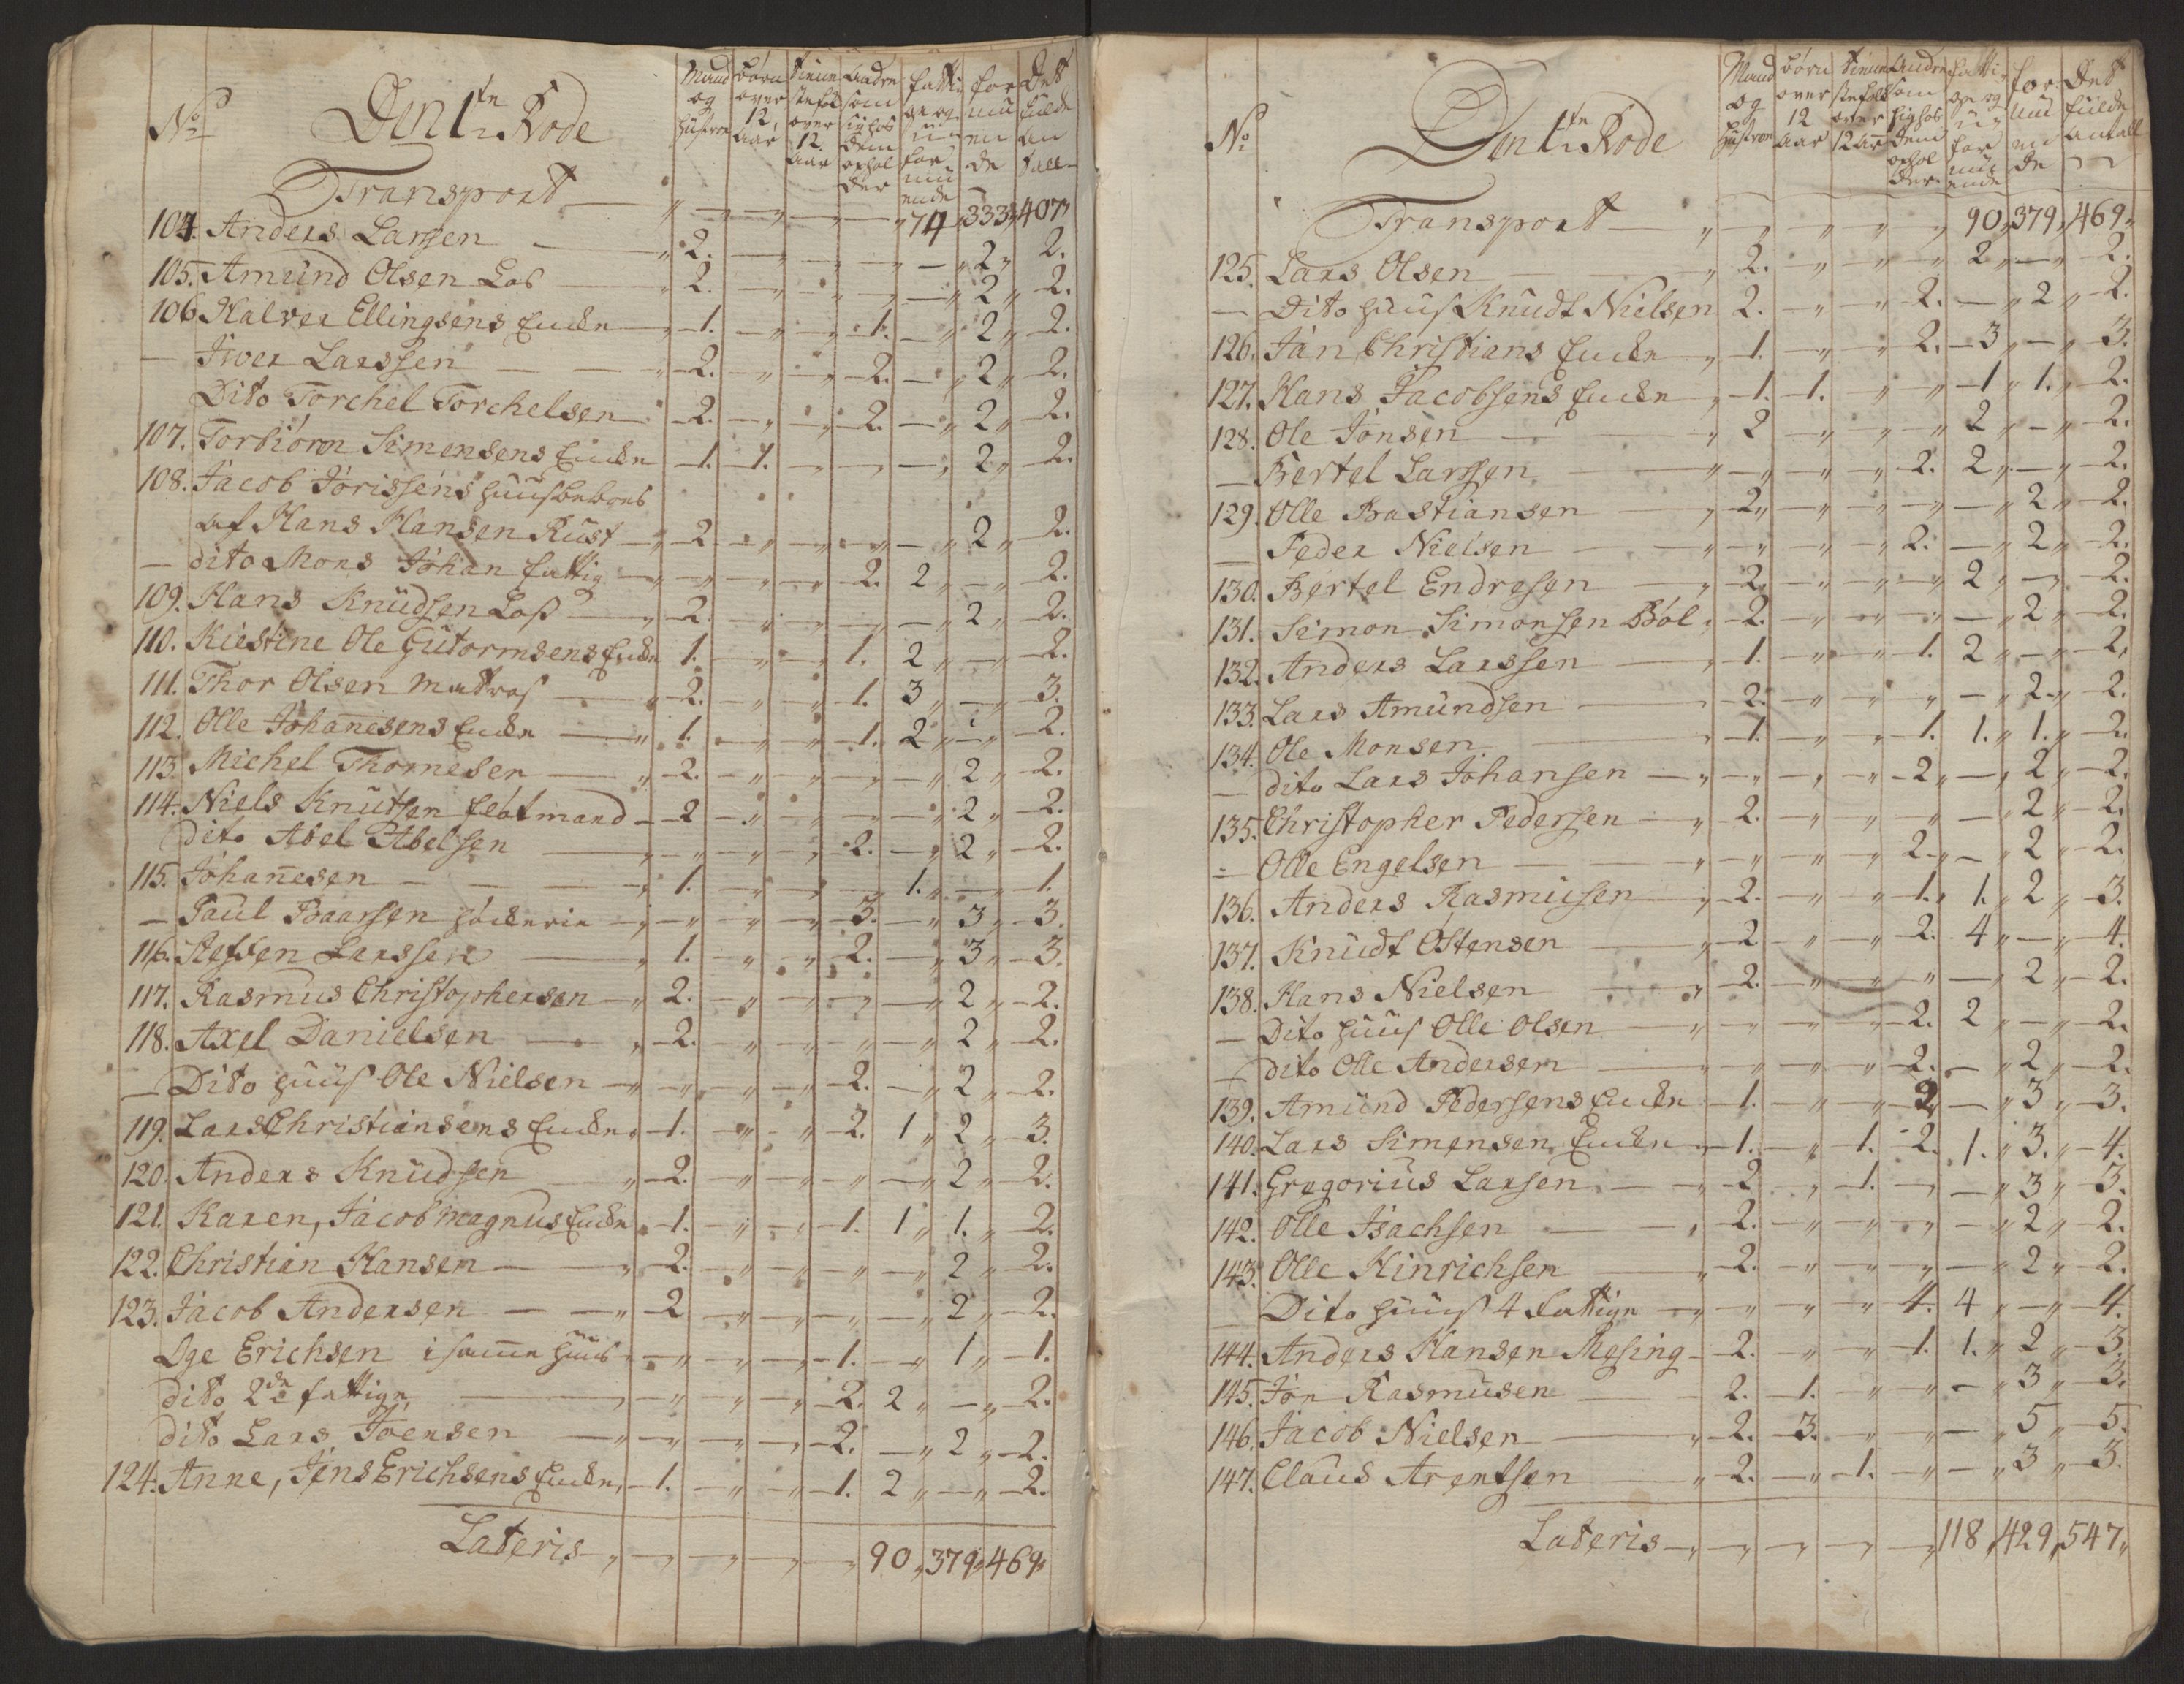 No Den 1te Rode Mand og Hustroe Börn over 12 Aar Tienniste folk over 12 Aar Andre som sig hos dem ophol der fatti ge og u for mu ende for mu en de Det fulde an tall
Transport 74 333 407
104. Anders Larssen 2. 2 2.
105. Amund Olsen Lods 2. 2 2.
106 Halvor Ellingsens Encke 1. 1. 2 2.
Iwer Larssen 2. 2. 2 2.
Dito Torchel Torchelsen 2. 2. 2 2.
107. Torbiörn Simensens Encke 1. 1. 2 2.
108. Jacob Jörissens huus beboes
af Hans Hansen Rust 2 2 2.
dito Mons Johan fattig 2. 2 2.
109. Hans Knudsen Loss 2. 2 2.
110. Kiestine Ole Gutormsens Encke 1. 1. 2 2.
111. Thor Olsen Matros 2. 1. 3 3.
112. Olle Johanesens Encke 1. 1. 2 2.
113. Michel Thomesen 2. 2 2.
114. Niels Knutsen flötmand 2 2 2.
Dito Abel Abelsen 2. 2 2.
115. Johanesen 1. 1. 1.
Paul Baarsen 3. 3 3.
116. Larssen 1. 2. 3 3.
117. Rasmus Christophersen 2. 2 2.
118. Axel Danielsen 2. 2 2.
Dito huus Ole Nielsen 2. 2 2.
119. Lars Christiansens Encke 1. 2. 1 2 3.
120. Anders Knudsen 2. 2 2.
121. Karen, Jacob Magnus Encke 1. 1. 1 1. 2.
122. Christian Hansen 2. 2 2.
123. Jacob Andersen 2 2 2.
Oge Erichsen i samme huus 1. 1 1.
dito 2de fattige 2. 2 2.
dito Lars Joensen 2. 2 2.
124. Anne, Jens Erichsens Encke 1. 1. 2 2.
Lateris 90 379 469
No Den 1te Rode Mand og Hustroe Börn over 12 Aar Tienniste folk over 12 Aar Andre som sig hos dem ophol der fatti ge og u for mu ende for mu en de Det fulde antall
Transport 90 379 469
125. Lars Olsen 2. 2 2.
Dito huus Knudt Nielsen 2. 2. 2 2.
126. Jan Christians Encke 1. 2. 3 3.
127. Hans Jacobsens Encke 1. 1. 1 1. 2.
128. Ole Jonsen 2 2 2.
Bertel Larssen 2. 2 2.
129. Olle Bastiansen 2 2 2.
Peder Nielsen 2. 2 2.
130. Bertel Endresen 2. 2 2.
131. Simon Simonsen Böl 2. 2 2.
132. Anders Larssen 1. 1. 2 2.
133. Lars Amundsen 2. 2 2.
134. Ole Monsen 1. 1. 1. 1. 2.
dito Lars Johansen 2 2 2.
135. Christopher Pedersen 2. 2 2.
Olle Engelsen 2. 2 2.
136. Anders Rasmusen 2. 1. 1. 2 3.
137. Knudt Östensen 2 2. 4 4.
138. Hans Nielsen 2. 2 2.
Dito huus Olle Olsen 2. 2 2.
dito Olle Andersen 2. 2 2.
139. Amund Pedersens Encke 1. 2 3 3.
140. Lars Simensen Encke 1. 1. 2. 1. 3. 4.
141. Gregorius Larsen 2 1. 3 3.
142. Olle Isachsen 2. 2 2.
143. Olle Hinrichsen 2. 2 2.
Dito huus 4 fattige 4. 4 4.
144. Anders Hansen Mesing 2. 1. 1. 2 3.
145. Jon Rasmusen 2. 1. 3 3.
146. Jacob Nielsen 2. 3. 5 5.
147. Claus Arentsen 2. 1. 3 3.
Lateris 118 429 547